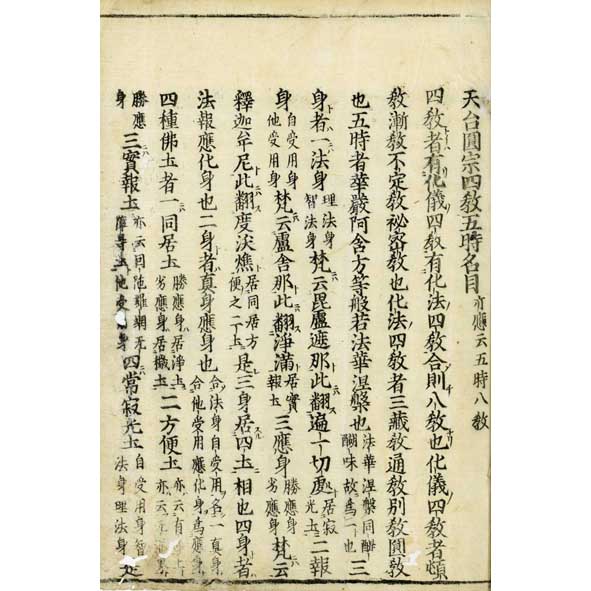 天台圓宗四教五時名目亦應云五時八教
四教者有化儀四教有化法四教合則八教也化儀四教者頓
教漸教不定教祕密教也化法四教者三藏教通教別教圓教
也五時者華嚴阿含方等般若法華涅槃也法華涅槃同醍醐味故爲一也三
身者一法身理法身智法身梵云毘盧遮那此翻遍一切處居寂光土二報
身自受用身他受用身梵云盧舍那此翻淨滿居實報土三應身勝應身劣應身梵云
釋迦牟尼此翻度沃燋居同居方便之二土是三身居四土相也四身者
法報應化身也二身者真身應身也合法身自受用名真身合他受用應化身爲應身
四種佛土者一同居土勝應身居淨土劣應身居穢土二方便土亦云有土亦云
勝應身三實報土亦云因陀羅網无土他受用身四常寂光土自受用身智法身理法身処